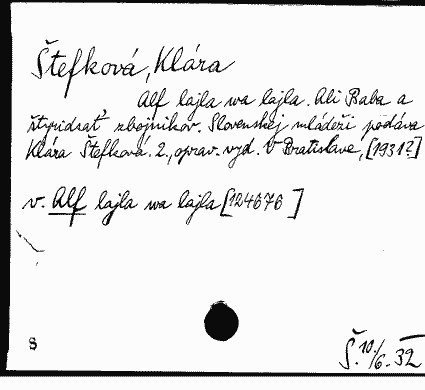 Štefková, Klára
Alf lajla wa lajla. Ali Baba a
štyridsať zbojníkov. Slovenskej mládeži podáva
Klára Štefková. 2., oprav. vyd. V Bratislave, [1931?]
v. Alf lajla wa lajla [124676]
8
Š. 10./6. 32